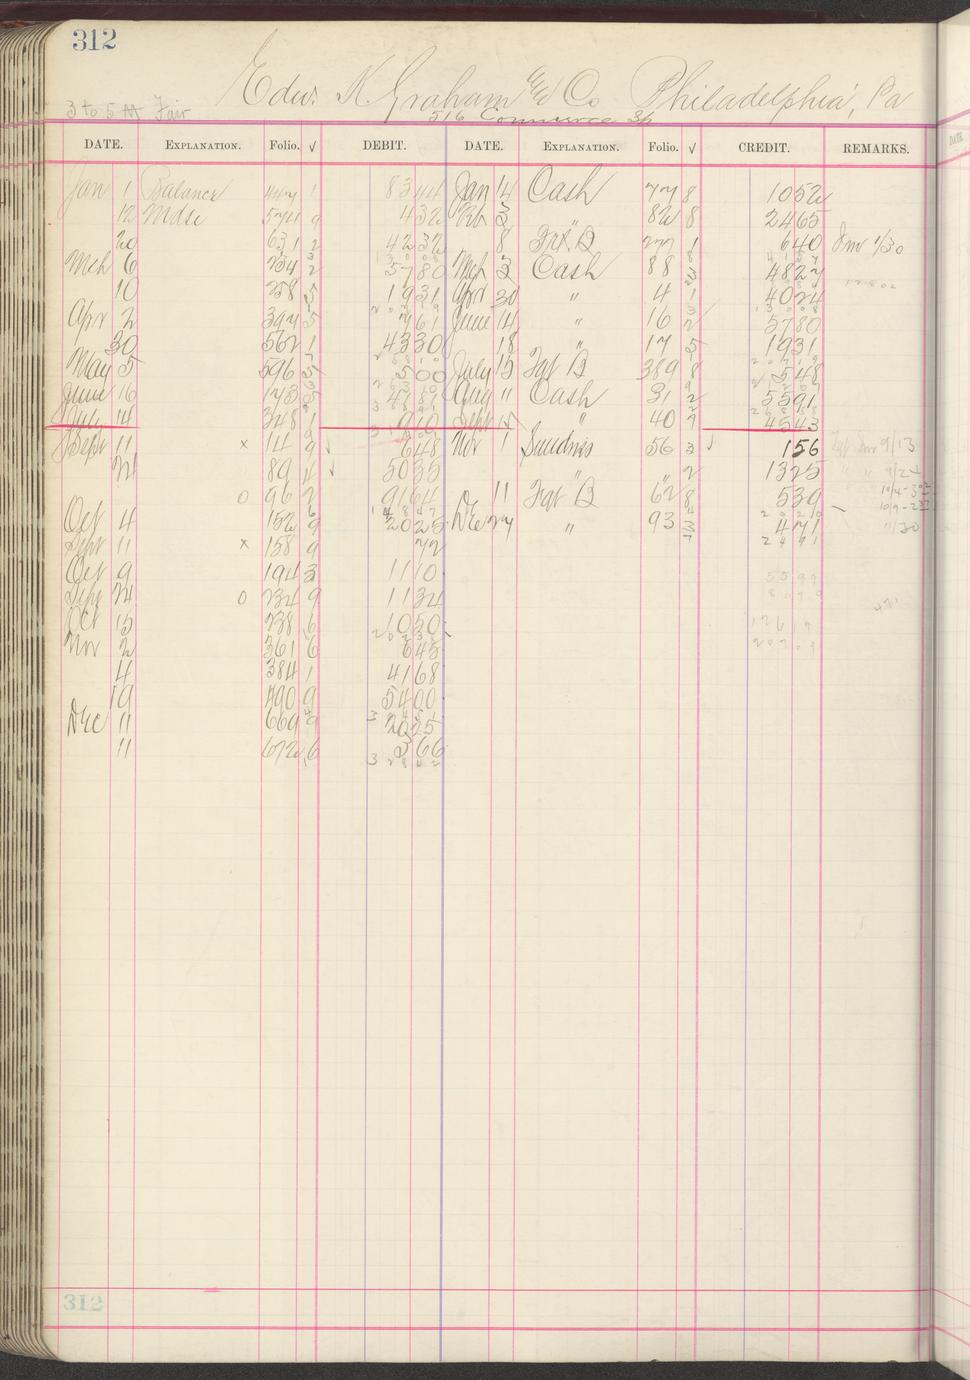 312
Edw. K. Graham & Co Philadelphia, Pa
3 to 5 M Fair
516 Commerce St
DATE. EXPLANATION. Folio. √ DEBIT. DATE. EXPLANATION. Folio. √ CREDIT. REMARKS.
Jan 1 Balance 447 1 83 44 Jan 14 Cash 77 8 10 52
12 Mdse 574 9 4 32 Feb 3 " 82 8 24 65
20 631 2 42 32 8 Frt. B 277 1 6 40 Dm 1/30
Mch 6 734 2 57 80 Mch 3 Cash 88 3 48 27
10 758 5 19 31 Apr 30 " 4 1 40 24
Apr 2 394 5 7 61 June 14 " 16 2 57 80
30 562 1 43 30 18 " 17 5 19 31
May 5 596 5 5 00 July 15 Frt B 389 8 5 48
June 16 143 5 41 89 Aug " Cash 31 2 55 91
July 14 348 1 9 10 Sept 15 " 40 7 45 43
Sept 11 x 14 9 √ 6 48 Nov 1 Sundries 56 3 √ 1 56 Frt Dm 9/13
21 89 4 √ 50 35 " 2 13 25 " " 9/24
o 96 2 91 64 11 Frt B 62 8 5 39
Oct 4 152 9 20 25 Dec 27 " 93 3 4 71 11/30
Sept 11 x 158 9 72
Oct 9 194 3 11 10
Sept 24 o 234 9 11 34
Oct 15 238 6 10 50
Nov 2 361 6 6 45
4 384 1 41 68
19 490 9 54 00
Dec 11 669 9 20 25
11 672 6 3 66
3 2 8 4 2
312